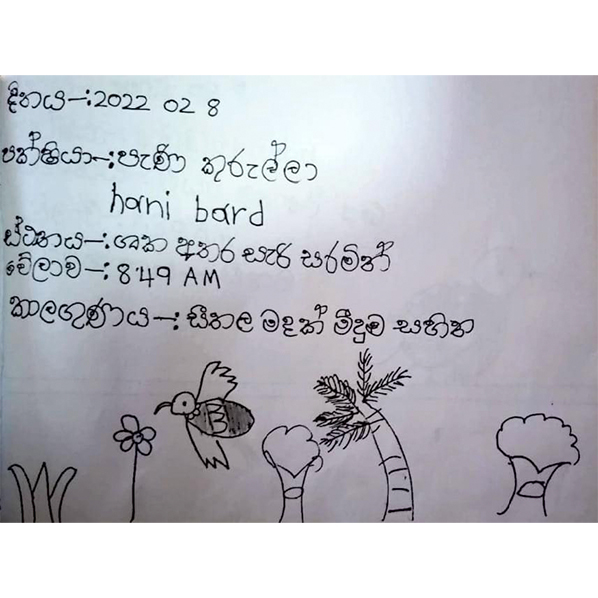 දිනය-:2022 02 8
පක්ෂියා-:පැණි කුරුල්ලා
hani bard
ස්ථනය-:ගෘක අතර සැරි සරමින්
වේලාව-:8:49 AM
කාලගුණය-:සීතල මදක් මීදුම සහිත
B